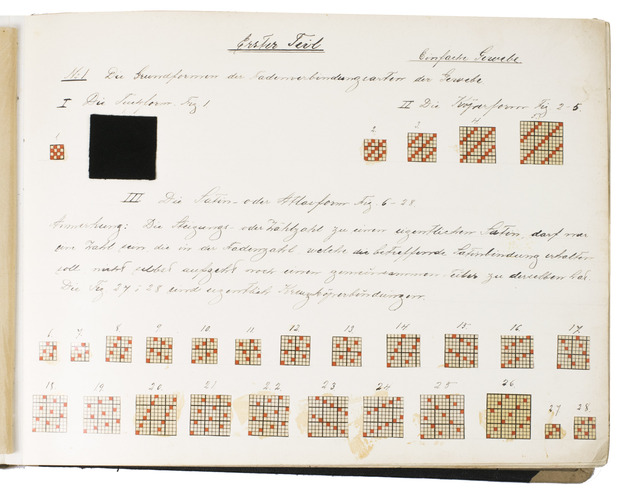 Erster Teil
Einfache Gewebe
No 1 Die Grundformen der Fadenverbindungsarten der Gewebe
I Die Tuchform. Fig 1
II Die Köperform Fig 2-5.
1
2 3 4
III Die Satin- oder Atlasform Fig. 6-28
Anmerkung: Die Steigungs- oder Zählzahl zu einen eigentlichen Satin, darf nur
eine Zahl sein die in der Fadenzahl welche die betreffende Satinbindung erhalten
soll nicht selbst aufgeht noch einen gemeinsamen Teiler zu derselben hat.
Die Fig 27 & 28 sind eigentlich Kreuzköperbindungen.
6 7 8 9 10 11 12 13 14 15 16 17
18 19 20 21 22 23 24 25 26 27 28